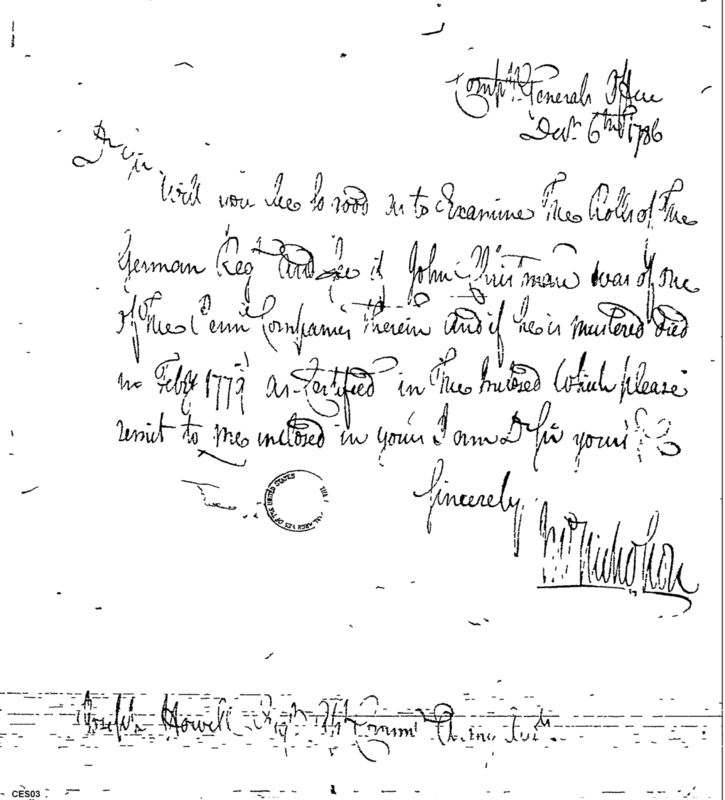 Compt. Generals Office
Decr. 6th 1786
Dr Sir
Will you be so good as to Examine The Rolls of The
German Regt and see if John Christman was of one
of The Penn Companies therein and if he is mustered died
in Feby 1779 as Certified in The inclosed Which please
remit to me inclosed in yours I am Dr Sir yours
Sincerely
Nicholson
ARCHIVES OF THE UNITED STATES
Joseph Howell Commr
CES03